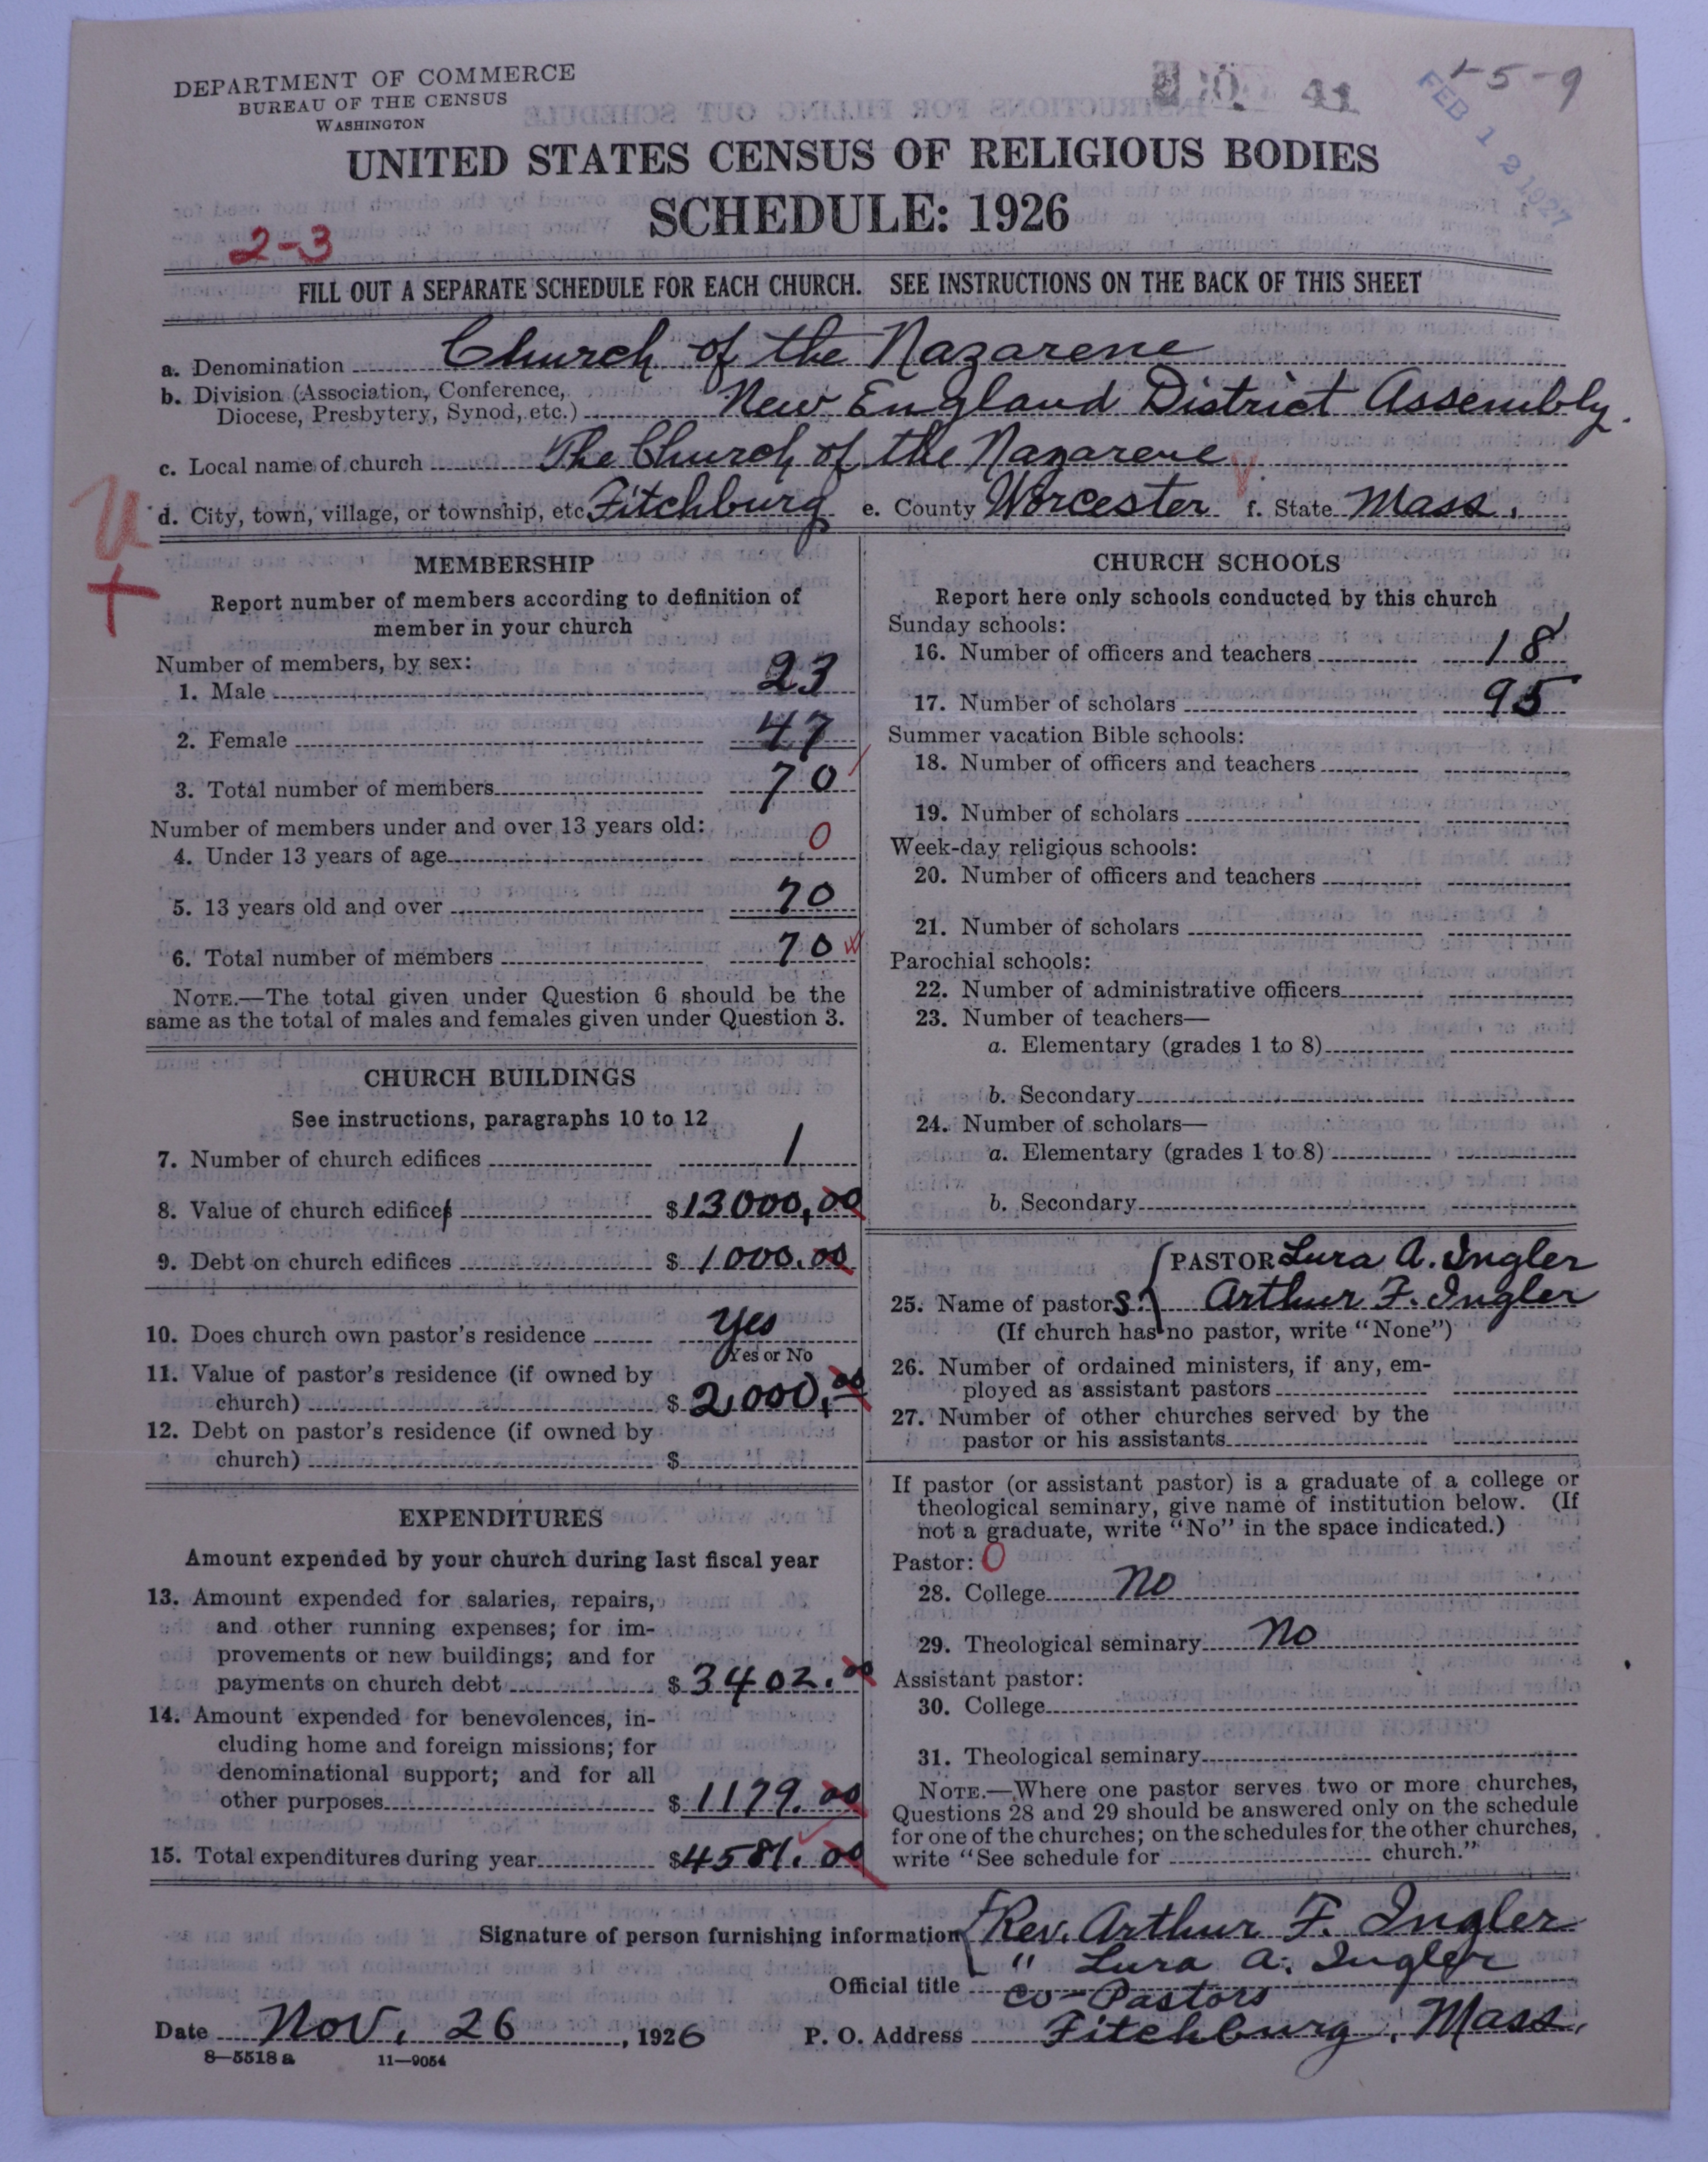 DEPARTMENT OF COMMERCE
BUREAU OF THE CENSUS
WASHINGTON
41
5-9
FEB 12 1927
UNITED STATES CENSUS OF RELIGIOUS BODIES
SCHEDULE: 1926
2-3
FILL OUT A SEPARATE SCHEDULE FOR EACH CHURCH. SEE INSTRUCTIONS ON THE BACK OF THIS SHEET
a. Denomination Church of the Nazarene
b. Division (Association, Conference,
Diocese, Presbytery, Synod, etc.) New England District Assembly.
c. Local name of church The Church of the Nazarene
d. City, town, village, or township, etc. Fitchburg e. County Worcester f. State Mass.
MEMBERSHIP
Report number of members according to definition of
member in your church
Number of members, by sex:
1. Male 23
2. Female 47
3. Total number of members 70
Number of members under and over 13 years old:
4. Under 13 years of age 0
5. 13 years old and over 70
6. Total number of members 70
NOTE.—The total given under Question 6 should be the
same as the total of males and females given under Question 3.
CHURCH BUILDINGS
See instructions, paragraphs 10 to 12
7. Number of church edifices 1
8. Value of church edifices $13000,00
9. Debt on church edifices $1000.00
10. Does church own pastor's residence Yes
Yes or No
11. Value of pastor's residence (if owned by
church) $2,000,00
12. Debt on pastor's residence (if owned by
church) $
EXPENDITURES
Amount expended by your church during last fiscal year
13. Amount expended for salaries, repairs,
and other running expenses; for im-
provements or new buildings; and for
payments on church debt $3402.00
14. Amount expended for benevolences, in-
cluding home and foreign missions; for
denominational support; and for all
other purposes $1179.00
15. Total expenditures during year $4581.00
CHURCH SCHOOLS
Report here only schools conducted by this church
Sunday schools:
16. Number of officers and teachers 18
17. Number of scholars 95
Summer vacation Bible schools:
18. Number of officers and teachers
19. Number of scholars
Week-day religious schools:
20. Number of officers and teachers
21. Number of scholars
Parochial schools:
22. Number of administrative officers
23. Number of teachers—
a. Elementary (grades 1 to 8)
b. Secondary
24. Number of scholars—
a. Elementary (grades 1 to 8)
b. Secondary
PASTOR Lura A. Ingler
25. Name of pastors: Arthur F. Ingler
(If church has no pastor, write "None")
26. Number of ordained ministers, if any, em-
ployed as assistant pastors
27. Number of other churches served by the
pastor or his assistants
If pastor (or assistant pastor) is a graduate of a college or
theological seminary, give name of institution below. (If
not a graduate, write "No" in the space indicated.)
Pastor: 0
28. College No
29. Theological seminary No
Assistant pastor:
30. College
31. Theological seminary
NOTE.—Where one pastor serves two or more churches,
Questions 28 and 29 should be answered only on the schedule
for one of the churches; on the schedules for the other churches,
write "See schedule for church."
Signature of person furnishing information Rev. Arthur F. Ingler
" Lura A. Ingler
Official title Co-Pastors
Date Nov. 26, 1926 P. O. Address Fitchburg, Mass.
8—5518 a 11—9054